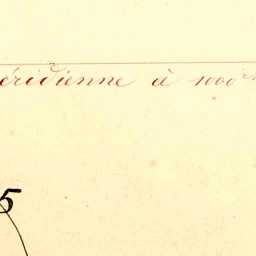 éridienne à 1000 m
5